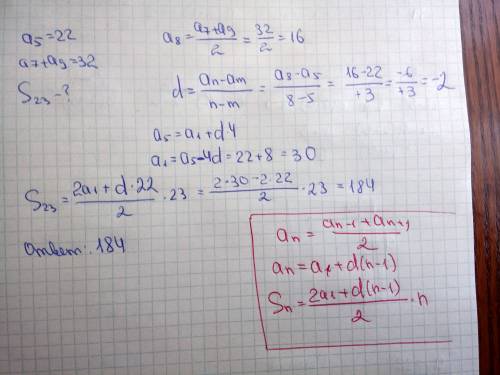 a₅=22
a₇+a₉=32
S₂₃-?
a₈ = (a₇+a₉)/2 = 32/2 = 16
d = (aₙ-aₘ)/(n-m) = (a₈-a₅)/(8-5) = (16-22)/(+3) = (-6)/(+3) = -2
a₅ = a₁+d4
a₁ = a₅-4d = 22+8 = 30
S₂₃ = (2a₁+d·22)/2 · 23 = (2·30-2·22)/2 · 23 = 184
Ответ: 184
aₙ = (aₙ₋₁+aₙ₊₁)/2
aₙ = a₁+d(n-1)
Sₙ = (2a₁+d(n-1))/2 · n